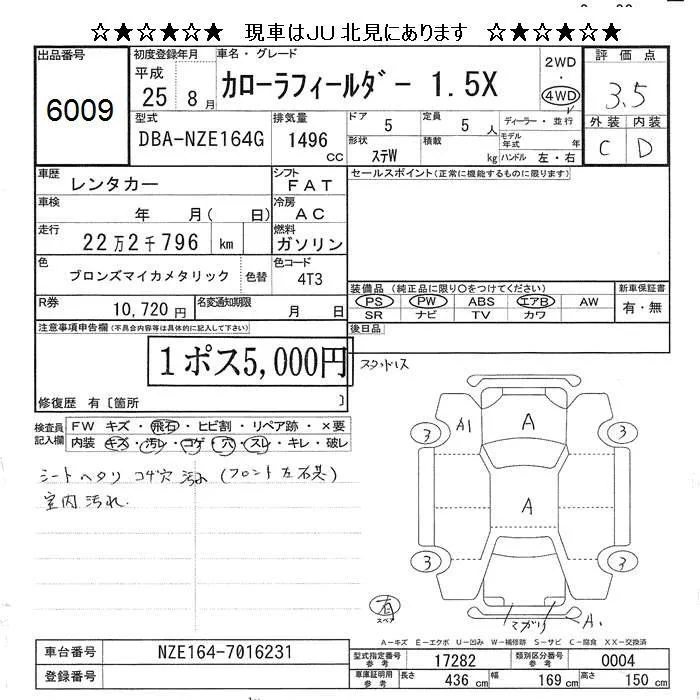 ☆★☆★☆★ 現車はJU北見にあります ☆★☆★☆★
出品番号
6009
初度登録年月
平成
25 8月
車名・グレード
カローラフィールダー 1.5X
2WD
・
4WD
評価点
3.5
外装 内装
C D
型式
DBA-NZE164G
排気量
1496
CC
ドア
5
定員
5人
形状
ステW
積載
kg
ディーラー・並行
モデル年式 年
ハンドル 左・右
車歴
レンタカー
シフト
FAT
セールスポイント(正常に機能するものに限ります)
車検
年 月( 日)
冷房
AC
走行
22万2千796 km
燃料
ガソリン
色
ブロンズマイカメタリック
色替
色コード
4T3
装備品 (純正品に限り○をつけてください)
PS PW ABS エアB AW
SR ナビ TV カワ
新車保証書
有・無
R券
10,720円
名変通知期限
月 日
後日品
注意事項申告欄(不具合内容等は具体的に記入して下さい)
1ポス5,000円
スタッドレス
修復歴 有〔箇所 〕
検査員記入欄
FW キズ・飛石・ヒビ割・リペア跡・×要
内装 キズ・汚レ・コゲ・穴・スレ・キレ・破レ
シートヘタリ コゲ穴 汚れ (フロント左右共)
室内汚れ
A1
A
3 3
A
3 3
有
スペア
マガリ
A1
A-キズ E-エクボ U-凹み W-補修跡 S-サビ C-腐食 XX-交換済
車台番号
NZE164-7016231
登録番号
型式指定番号
参考
17282
類別区分番号
参考
0004
車庫証明用
参考
長さ
436 cm
幅
169 cm
高さ
150 cm